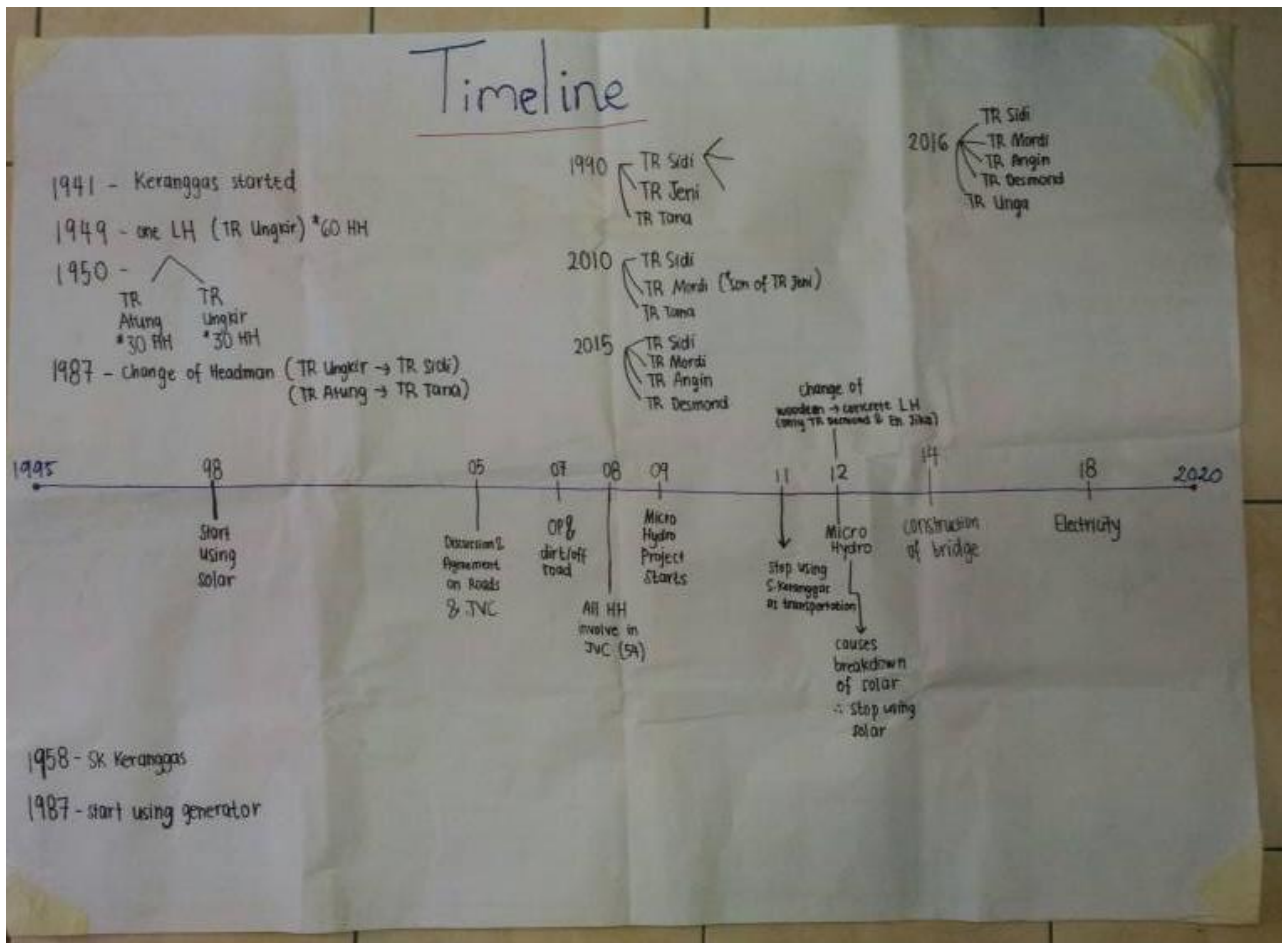 Timeline
1941 - Keranggas started
1949 - one LH (TR Ungkir) *60 HH
1950 -
TR
Atung
*30 HH
TR
Ungkir
*30 HH
1987 - Change of Headman (TR Ungkir → TR Sidi)
(TR Atung → TR Tana)
1990
TR Sidi
TR Jeni
TR Tana
2010
TR Sidi
TR Mordi (*son of TR Jeni)
TR Tana
2015
TR Sidi
TR Mordi
TR Angin
TR Desmond
2016
TR Sidi
TR Mordi
TR Angin
TR Desmond
TR Unga
1995
98
Start
using
solar
05
Discussion &
Agreement
on Roads
& JVC
07
OP &
dirt/off
road
08
All HH
involve in
JVC (54)
09
Micro
Hydro
Project
Starts
11
stop using
S.Keranggas
as transportation
Change of
wooden → concrete LH
(only TR Desmond & En Jika)
12
Micro
Hydro
causes
breakdown
of solar
∴ stop using
solar
14
construction
of bridge
18
Electricity
2020
1958 - SK Keranggas
1987 - start using generator